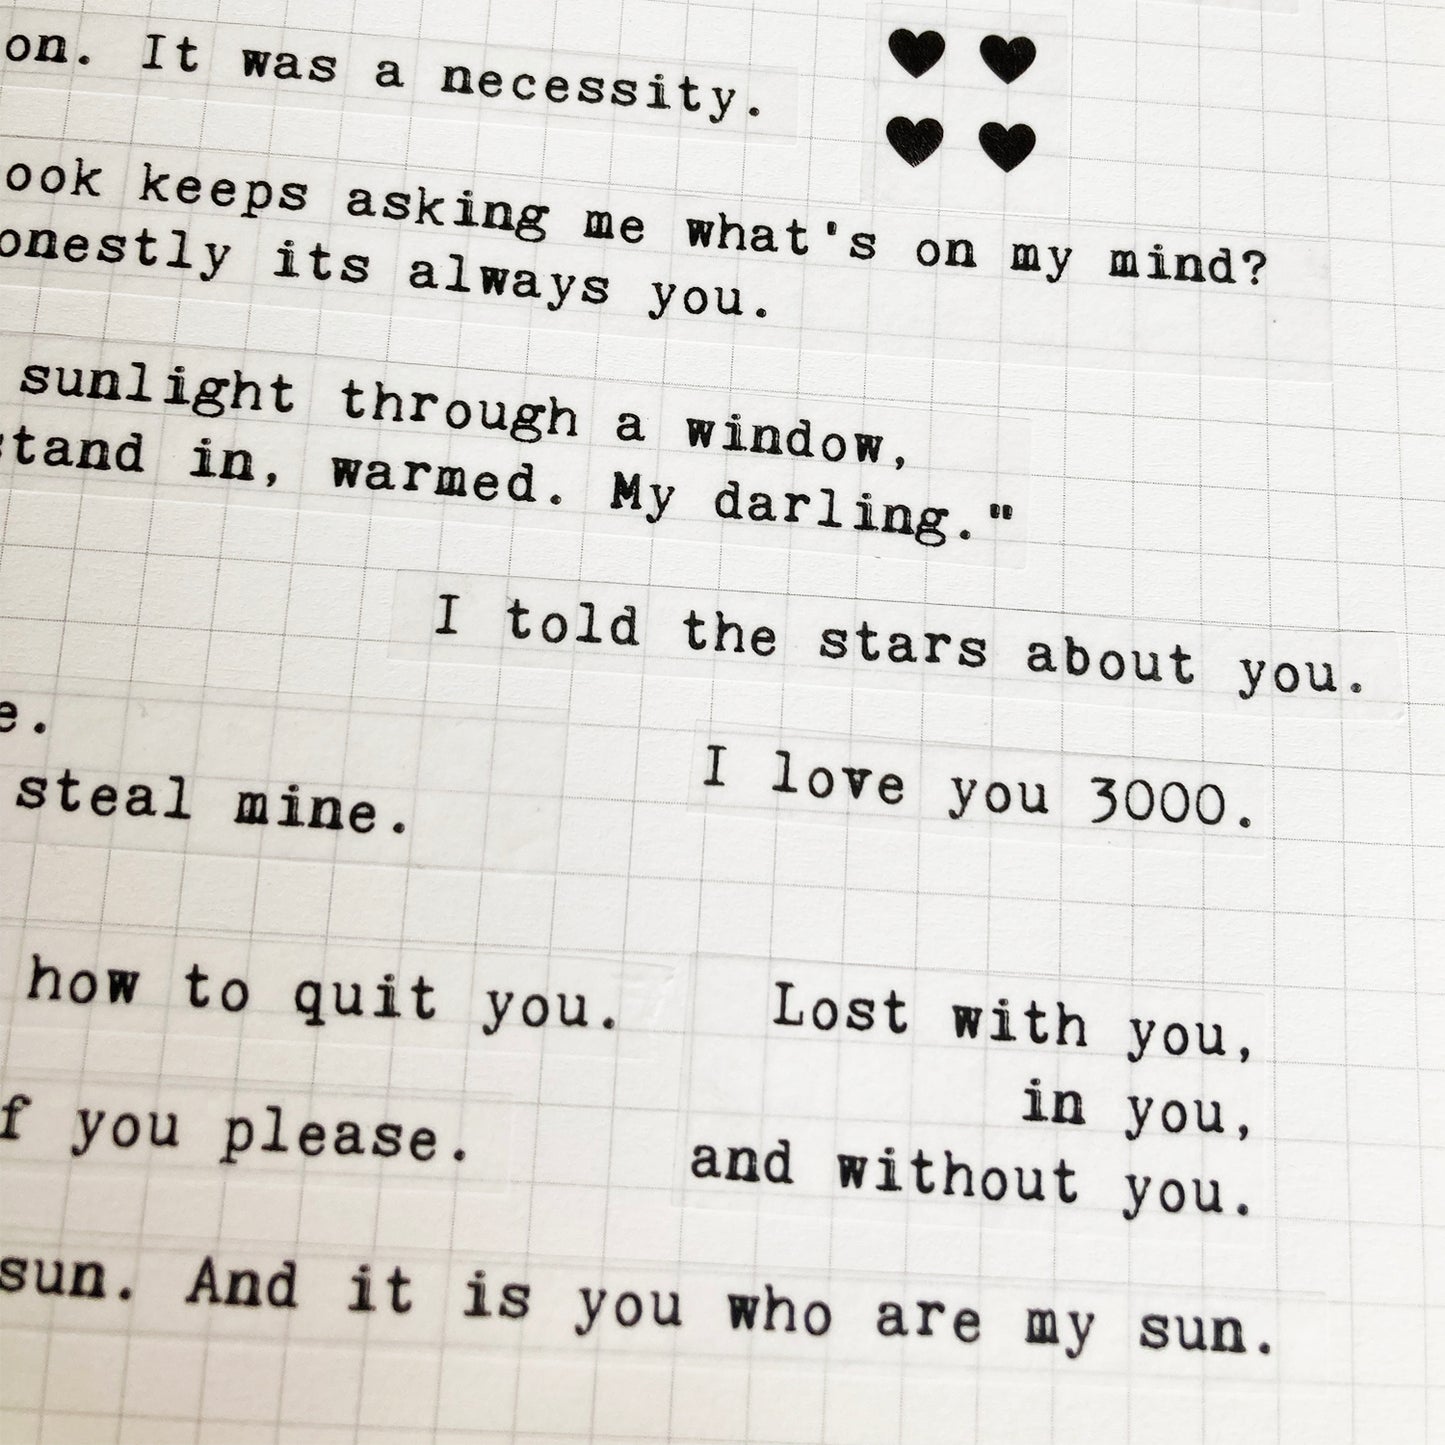 on. It was a necessity.
ook keeps asking me what's on my mind?
onestly its always you.
sunlight through a window,
stand in, warmed. My darling."
I told the stars about you.
e.
I love you 3000.
steal mine.
how to quit you.
Lost with you,
in you,
and without you.
f you please.
sun. And it is you who are my sun.